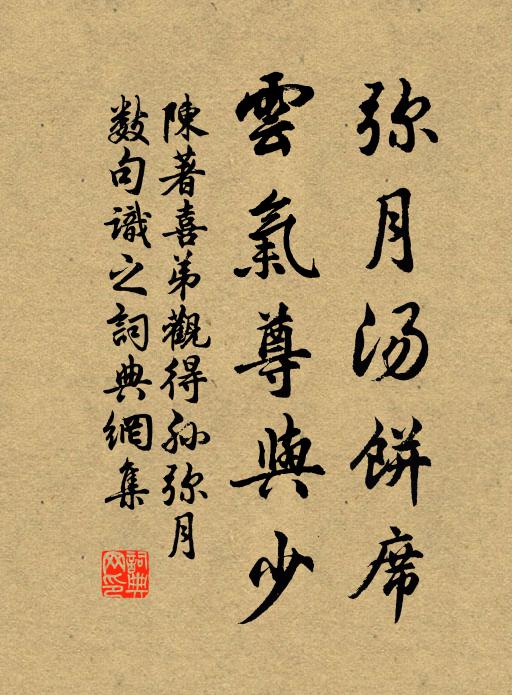 弥月汤餅席
雲氣尊與少
陳著喜弟觀得孙弥月
數句識之詞典網集
詞典网印